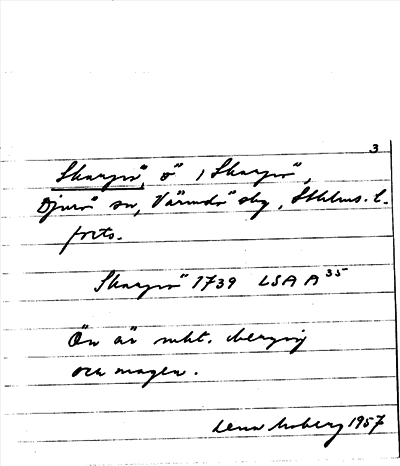 3
Skarpö, ö i Skarpö,
Djurö sn, Värmdö skg, Sthlms. l.
forts.
Skarpö 1739 LSA A 35
Ön är mkt. bergig
och mager.
Lena Moberg 1957